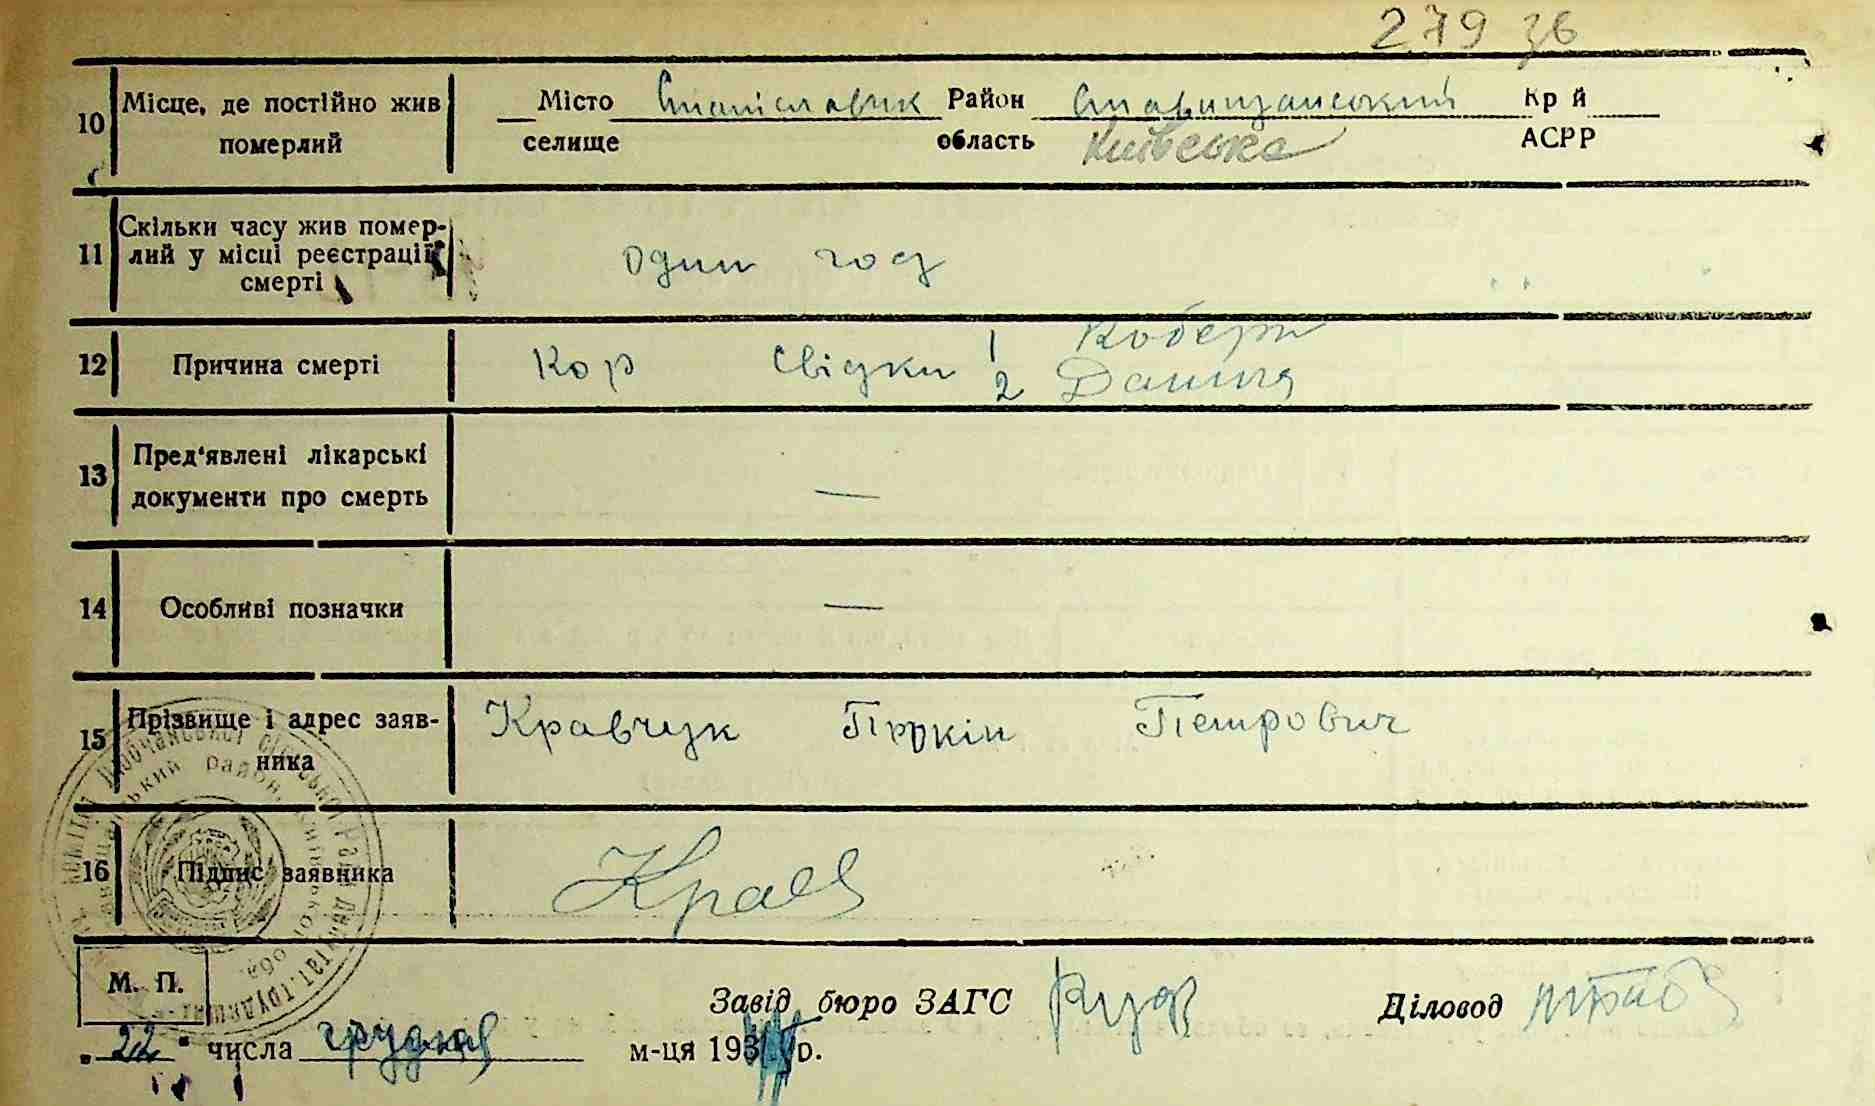 279 зв
10 Місце, де постійно жив померлий Місто Станіславчик Район Ставищанський Кр й
селище область Київська АСРР
11 Скільки часу жив помер-
лий у місці реєстрації
смерті один год
12 Причина смерті Кор Свідки 1 Кобери
2 Данило
13 Пред'явлені лікарські
документи про смерть —
14 Особливі позначки —
15 Прізвище і адрес заяв-
ника Кравчук Прокіп Петрович
16 Підпис заявника Крав
М. П.
Завід бюро ЗАГС Діловод
„22" числа грудня м-ця 19 р.